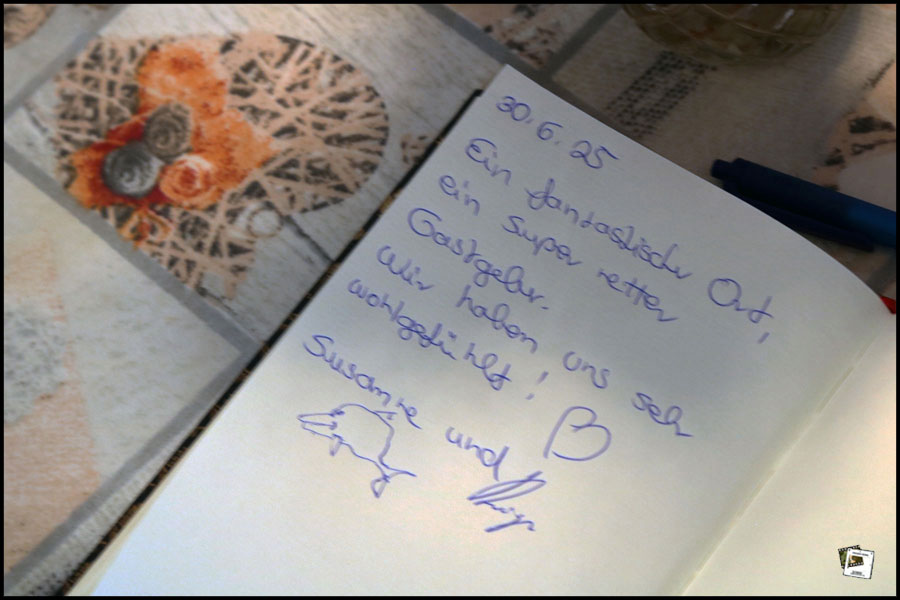 30.6.25
Ein fantastischer Ort,
ein super netter
Gastgeber.
Wir haben uns sehr
wohlgefühlt!
Susanne und